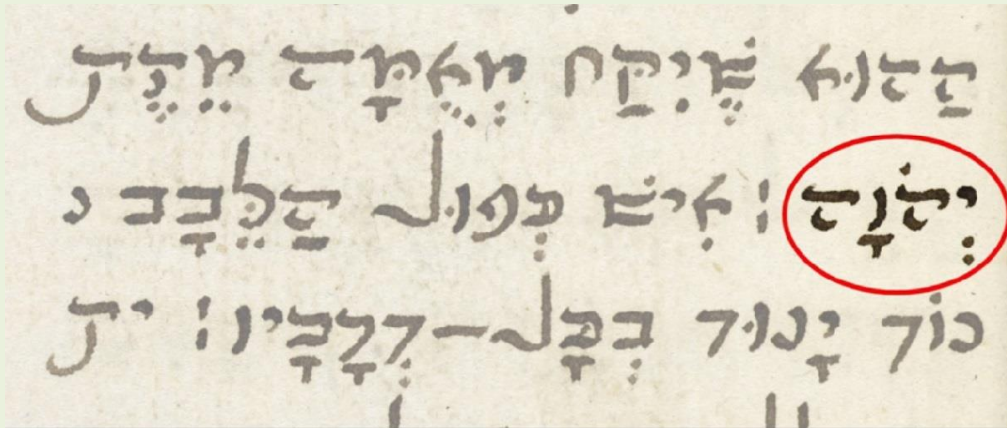 הַהוּא שֶׁיִקַּח מְאֻמָּה
יְהֹוָה ׃ אִישׁ כְּפוּל הַלֵּבָב נ
נוֹד יָנוּד בְּכָּל־דְרָכָיו ׃ ית